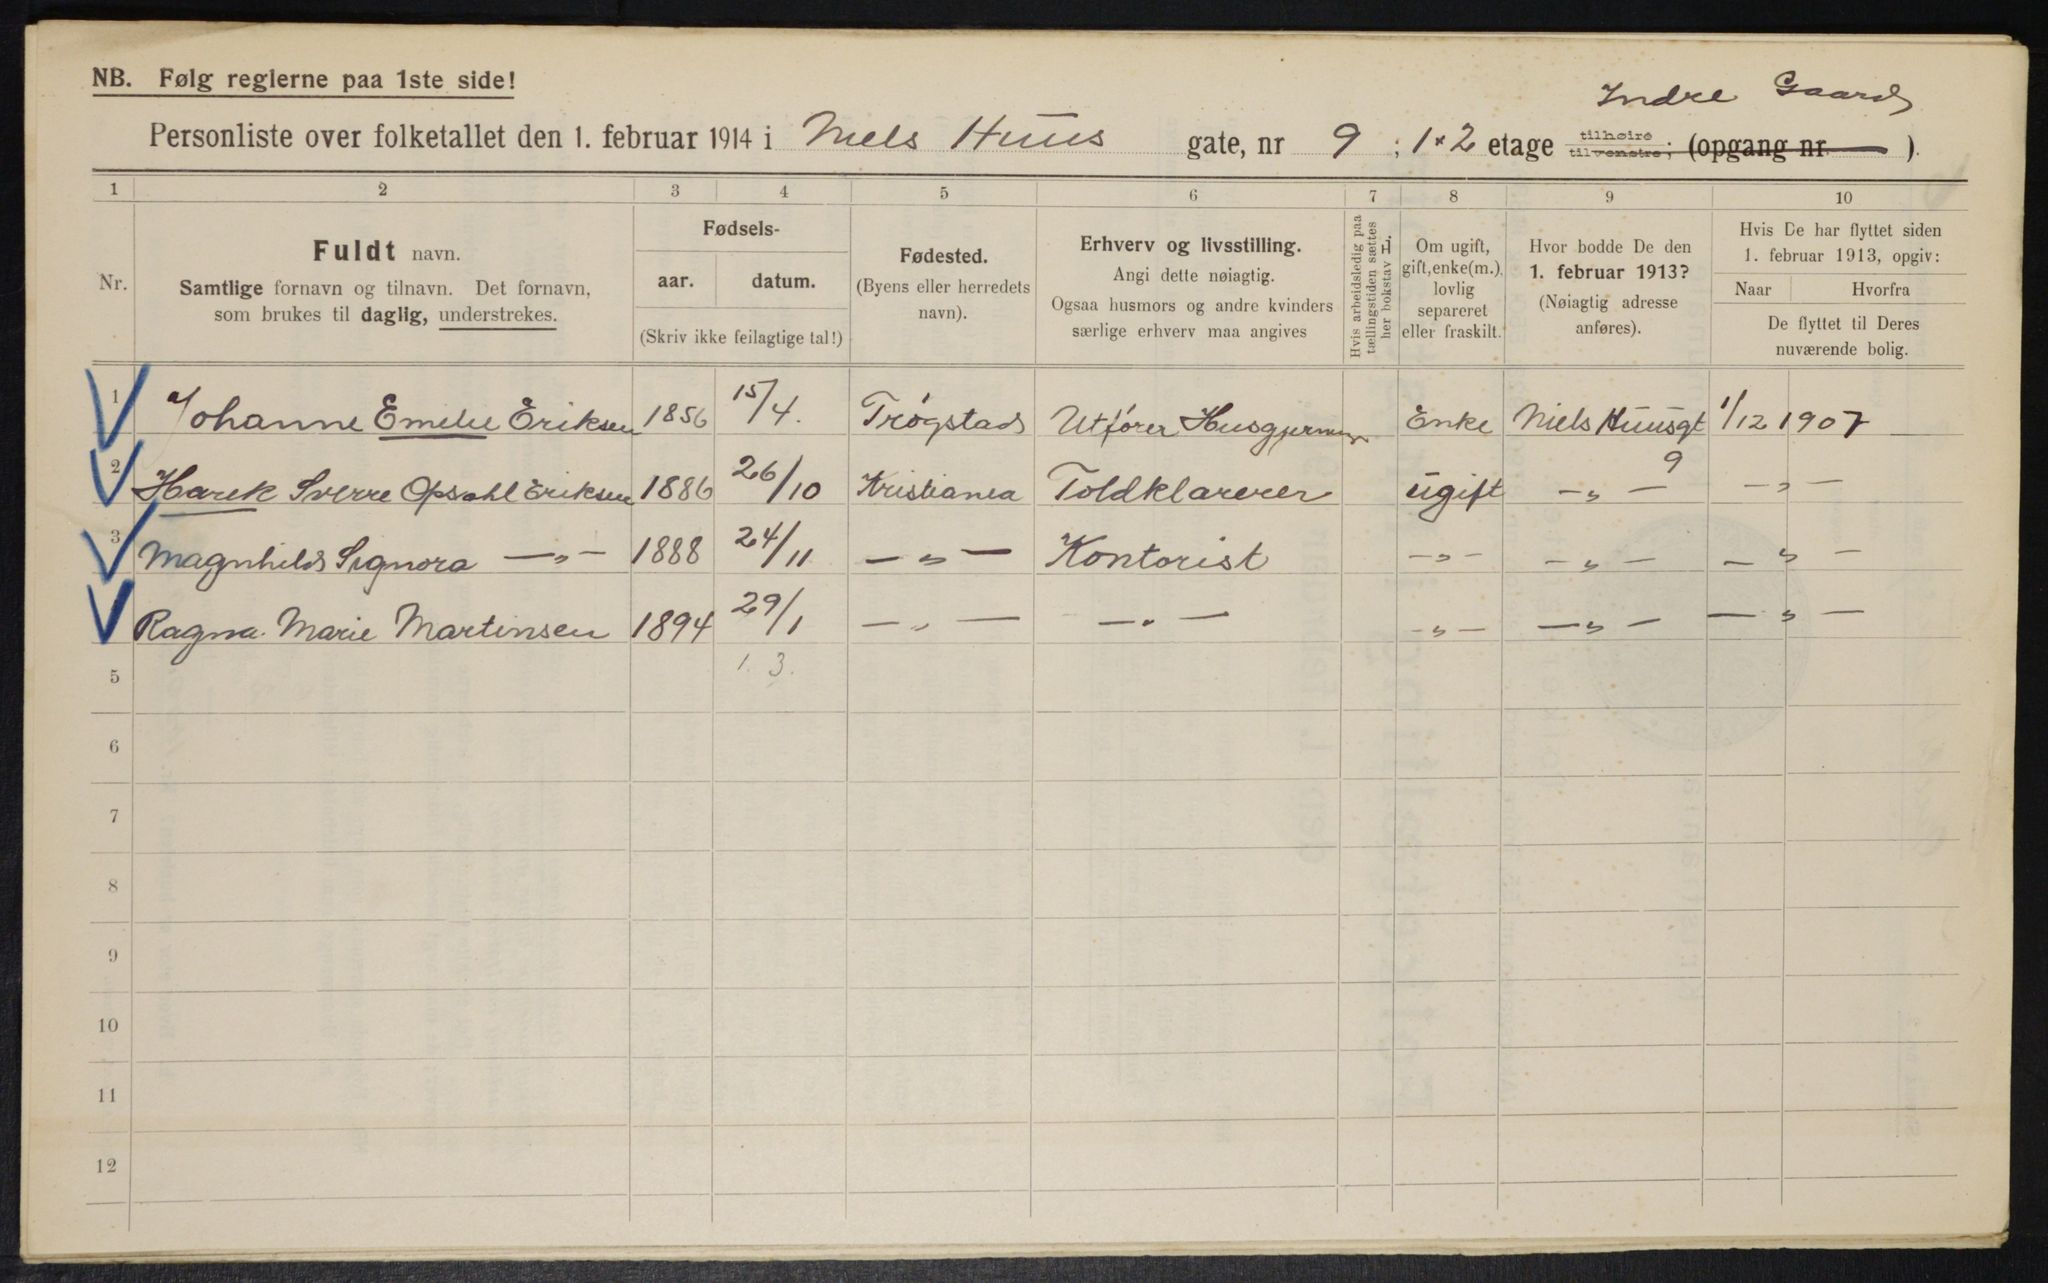 NB. Følg reglerne paa 1ste side!
Indre Gaard
Personliste over folketallet den 1. februar 1914 i Niels Huus gate, nr 9 ; 1 × 2 etage tilhøire tilvenstre; (opgang nr. — ).
1 2 3 4 5 6 7 8 9 10
Nr.
Fuldt navn.
Samtlige fornavn og tilnavn. Det fornavn,
som brukes til daglig, understrekes.
Fødsels-
aar. datum.
(Skriv ikke feilagtige tal!)
Fødested.
(Byens eller herredets
navn).
Erhverv og livsstilling.
Angi dette nøiagtig.
Ogsaa husmors og andre kvinders
særlige erhverv maa angives
Hvis arbeidsledig paa
tællingstiden sættes
her bokstav L.
Om ugift,
gift, enke(m.),
lovlig
separeret
eller fraskilt.
Hvor bodde De den
1. februar 1913?
(Nøiagtig adresse
anføres).
Hvis De har flyttet siden
1. februar 1913, opgiv:
Naar Hvorfra
De flyttet til Deres
nuværende bolig.
1 Johanne Emilie Eriksen 1856 15/4. Trøgstad Utfører Husgjerning Enke Niels Huusgt 9 1/12 1907
2 Harek Sverre Opsahl Eriksen 1886 26/10 Kristiania Toldklarerer ugift — " — — " —
3 Magnhild Signora — " — 1888 24/11 — " — Kontorist — " — — " — — " —
Ragna Marie Martinsen 1894 29/1 — " — — " — — " — — " — — " —
5 1. 3.
6
7
8
9
10
11
12